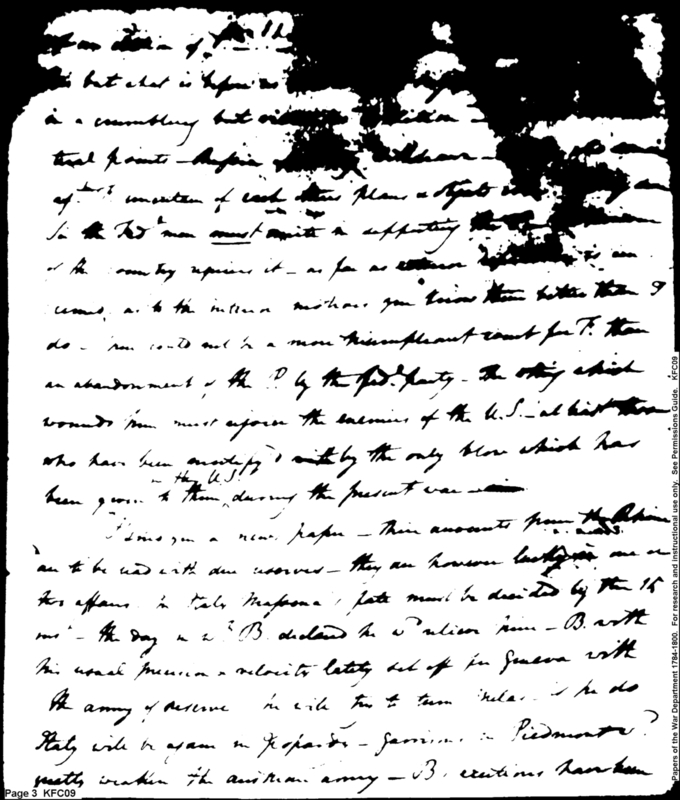 of an
but what is before us
in a crumbling but
tral points – Russia withdrawn –
ag.st uncertain of each others plans & objects
So the Fed.l men must unite in supporting the
of the country requires it – as far as exterior
cerned, as to the interior motives you know them better than I
do – there could not be a more triumphant event for F. than
an abandonment of the P. by the fed.l party – the thing which
wounds him must rejoice the enemies of the U.S. – at least those
who have been mortify'd with by the only blow which has
been given to them, by the U.S. during the present war –
I send you a news paper – their accounts from the Rhine
are to be read with due reserves – they are however lucky in one or
two affairs. In Italy Massena's fate must be decided by the 15
ins.t – the day on w.h B. declared he w.d relieve him – B. with
his usual precision & velocity lately set off for Geneva with
the army of reserve he will try to turn Melas – if he do
Italy will be again in jeopardy – garrisons in Piedmont w.d
greatly weaken the austrian army – B. exertions have been
Page 3 KFC09
Papers of the War Department 1784-1800. For research and instructional use only. See Permissions Guide. KFC09